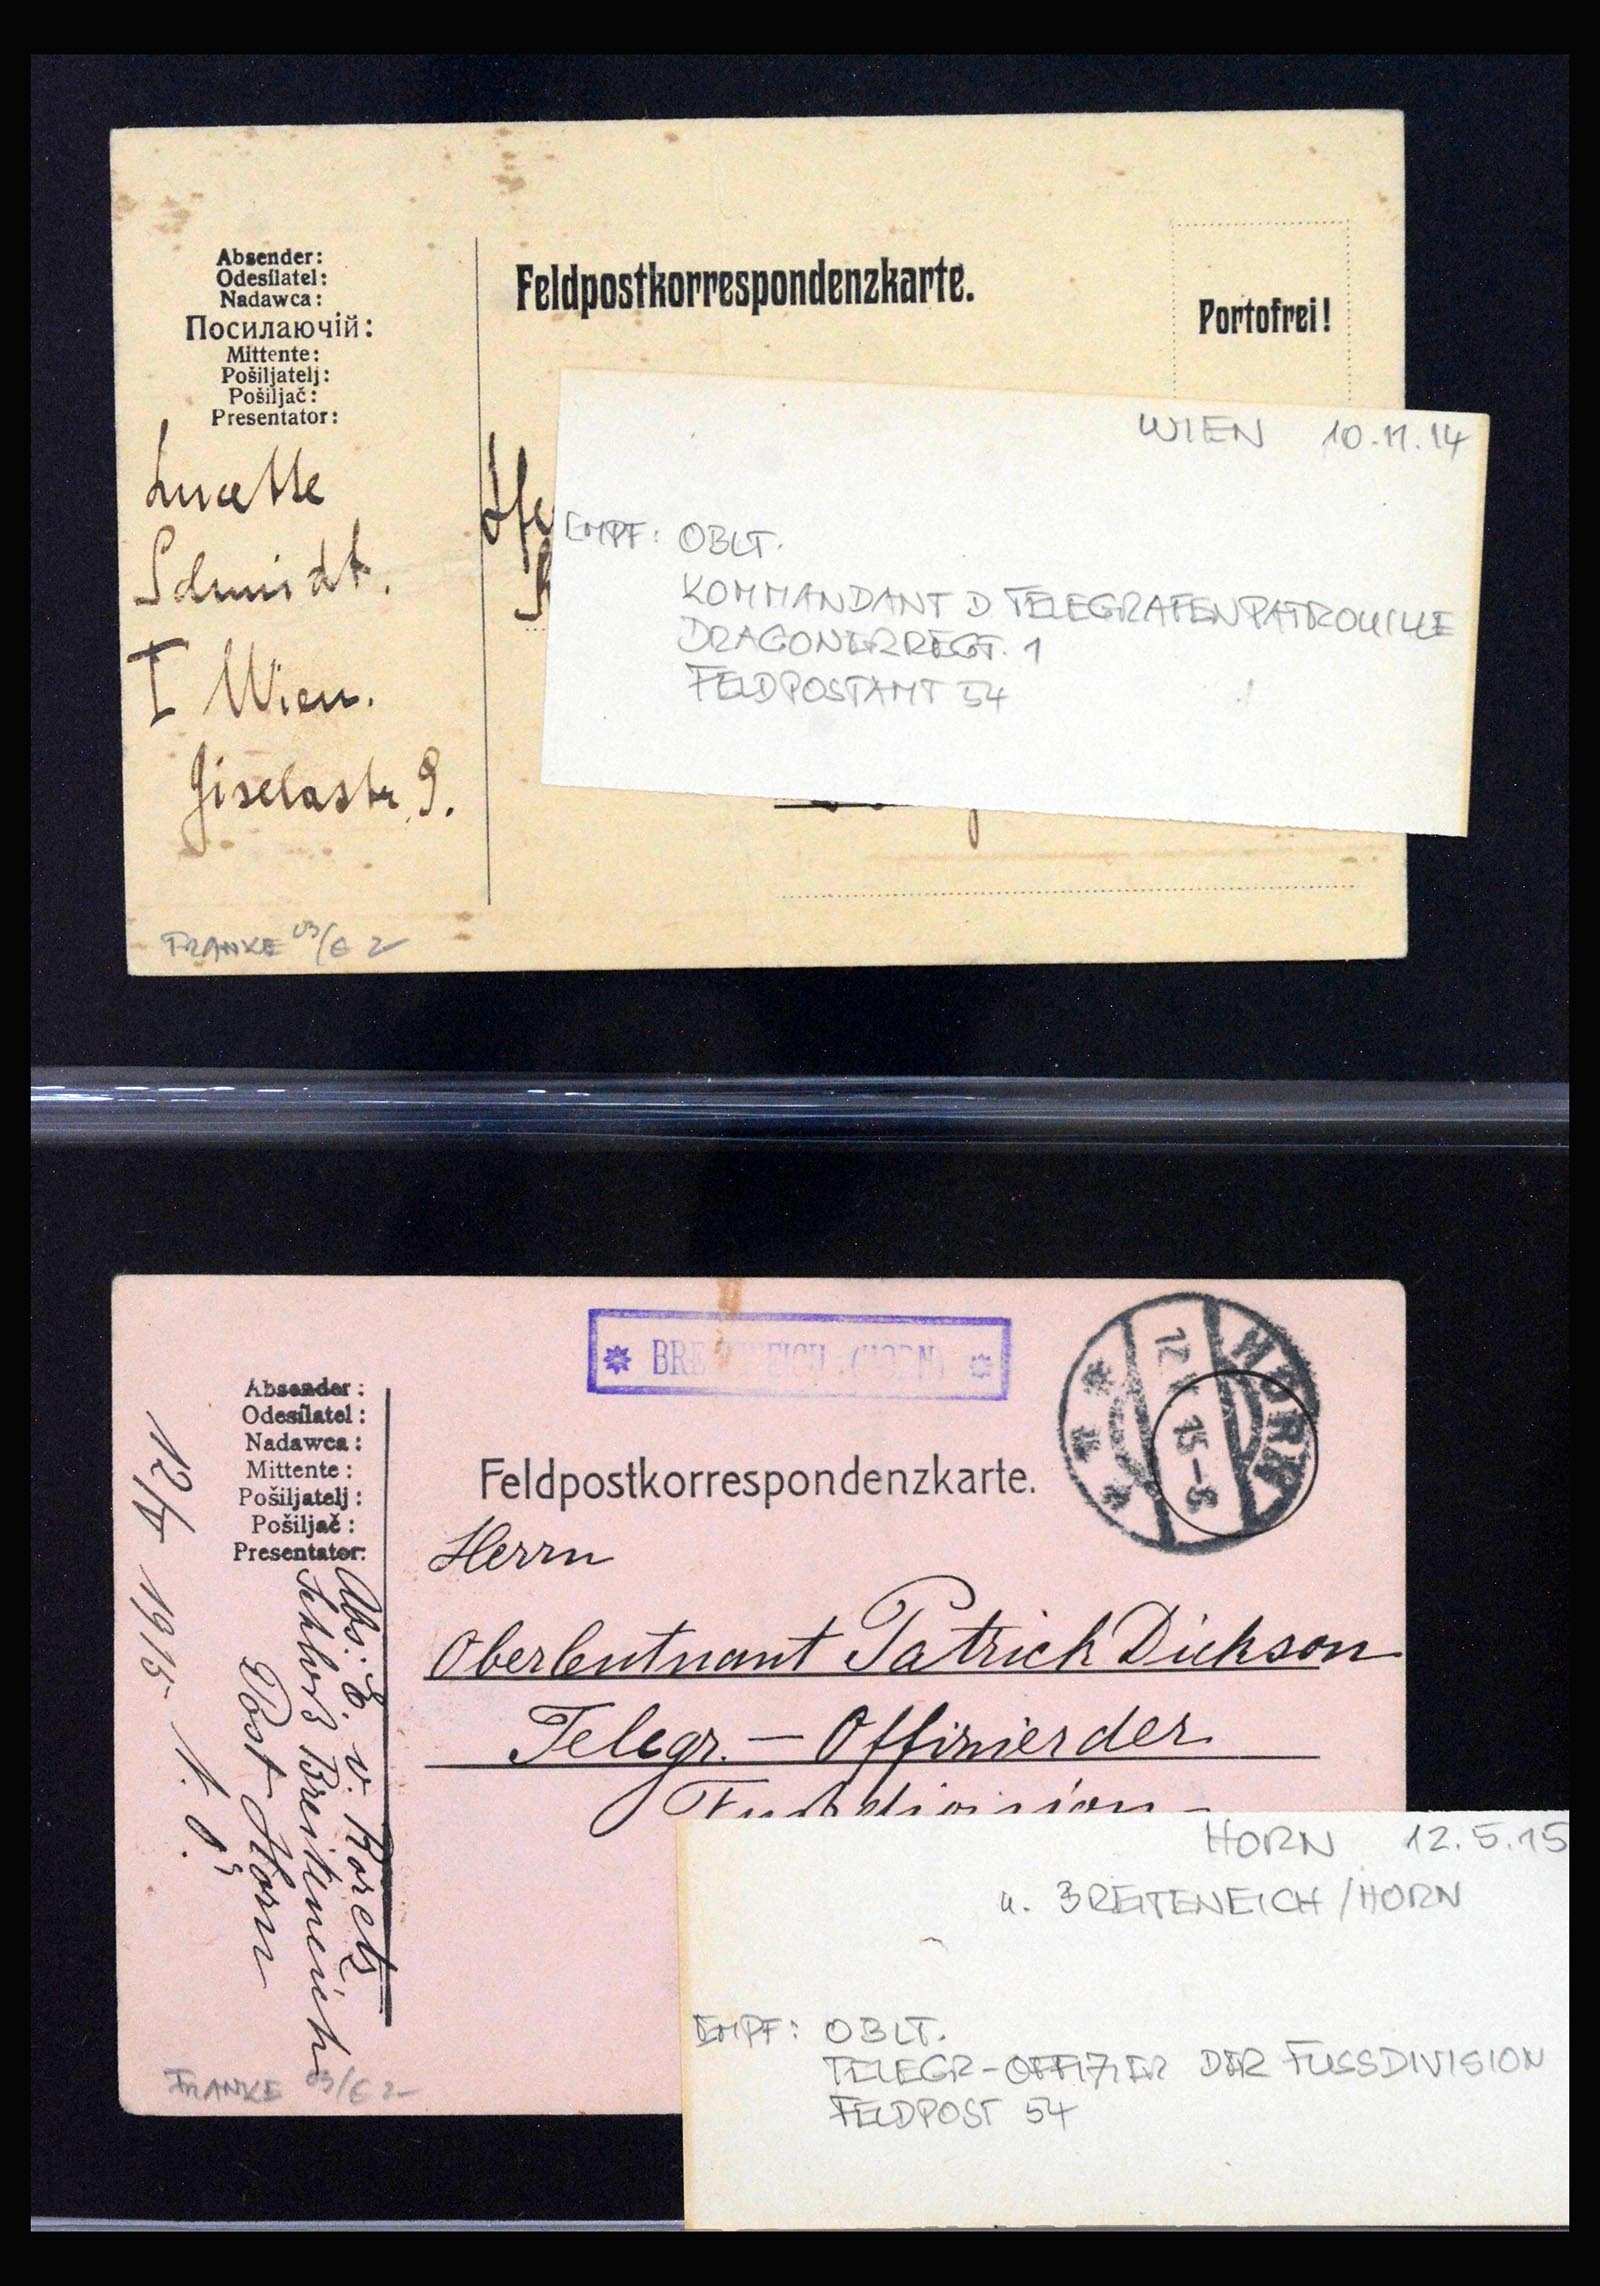 Absender:
Odesílatel:
Nadawca:
Посилаючій:
Mittente:
Pošiljatelj:
Pošiljač:
Presentator:
Feldpostkorrespondenzkarte.
Portofrei!
Lucette
Schmidt.
I Wien.
Giselastr. 9.
FRANKE 03/€ 2-
WIEN 10.11.14
EMPF: OBLT.
KOMMANDANT D TELEGRAFENPATROUILLE
DRAGONERREGT. 1
FELDPOSTAMT 54
BREITENEICH (HORN)
HORN
15-6
Absender:
Odesílatel:
Nadawca:
Mittente:
Pošiljatelj:
Pošiljač:
Presentator:
Feldpostkorrespondenzkarte.
Herrn
Oberleutnant Patrick Dickson
Telegr. - Offizier der
Fussdivision
Abs.: E. v. Koretz
Schloß Breiteneich
Post Horn
N. Ö.
12/V 1915
FRANKE 03/€ 2-
HORN 12.5.15
u. BREITENEICH/HORN
EMPF: OBLT.
TELEGR-OFFIZIER DER FUSSDIVISION
FELDPOST 54